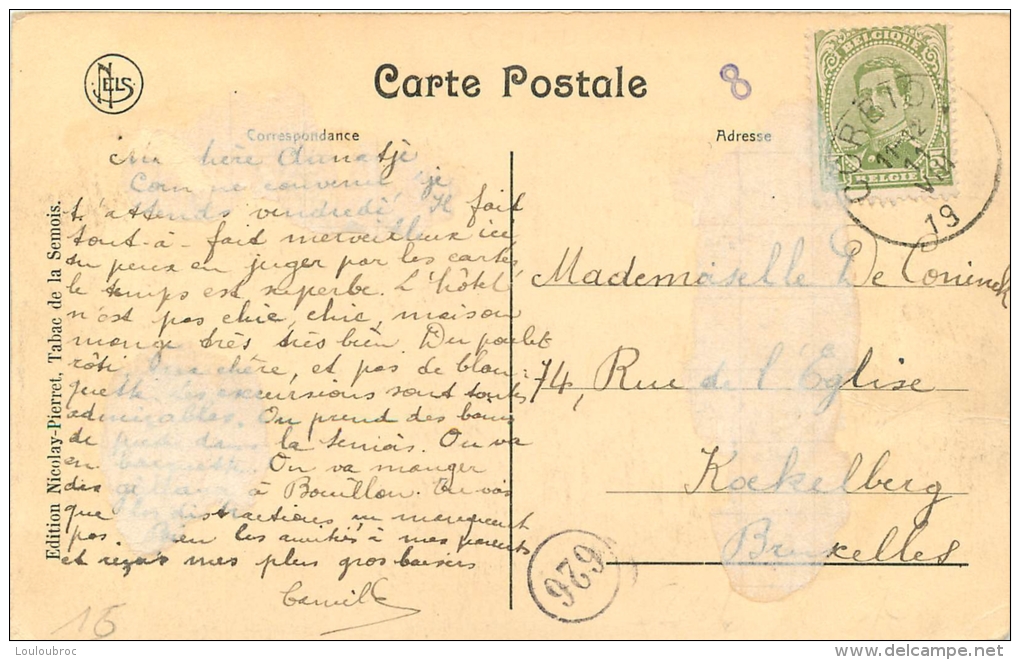 NELS
Carte Postale
8
BELGIQUE
BELGIE
CORBION
11-12
11
VIII
19
Correspondance
Adresse
Ma chère
Comme convenu, je
t'attends vendredi. Il fait
tout-à-fait merveilleux ici
tu peux en juger par les cartes
le temps est superbe. L'hôtel
n'est pas chic, chic, maison
mange très très bien. Du poulet
rôti, ma chère, et pas de blan-
quette. Les excursions sont toutes
admirables. On prend des bains
de pied dans la Semois. On va
en barquette. On va manger
des à Bouillon. Tu vois
que les distractions ne manquent
pas. Bien les amitiés à mes parents
et reçois mes plus gros baisers
Camille
Mademoiselle De Coninck
74, Rue de l'Église
Koekelberg
Bruxelles
Edition Nicolay-Pierret, Tabac de la Semois.
626
15
Louloubroc
www.delcampe.net